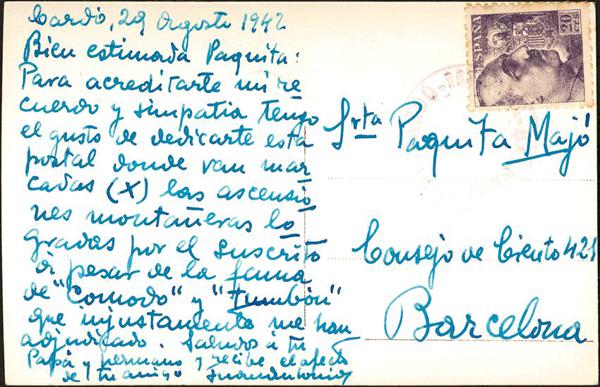 Cardó, 29 Agosto 1942
Bien estimada Paquita:
Para acreditarte mi re
cuerdo y simpatia tengo
el gusto de dedicarte esta
postal donde van mar
cadas (X) las ascensio
nes montañeras lo
gradas por el suscrito
a pesar de la fama
de "Comodo" y "Tumbón"
que injustamente me han
adjudicado. Saludos a tu
Papá y hermano y recibe el afecto
de tu amigo Juan Antonio
ESPAÑA
20 CTS
Srta Paquita Majó
Consejo de Ciento 421
Barcelona